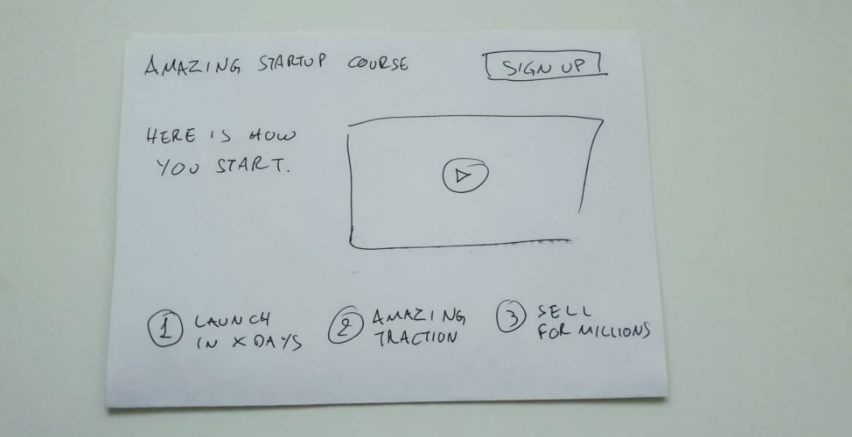 AMAZING STARTUP COURSE
SIGN UP
HERE IS HOW
YOU START.
1 LAUNCH
IN X DAYS
2 AMAZING
TRACTION
3 SELL
FOR MILLIONS